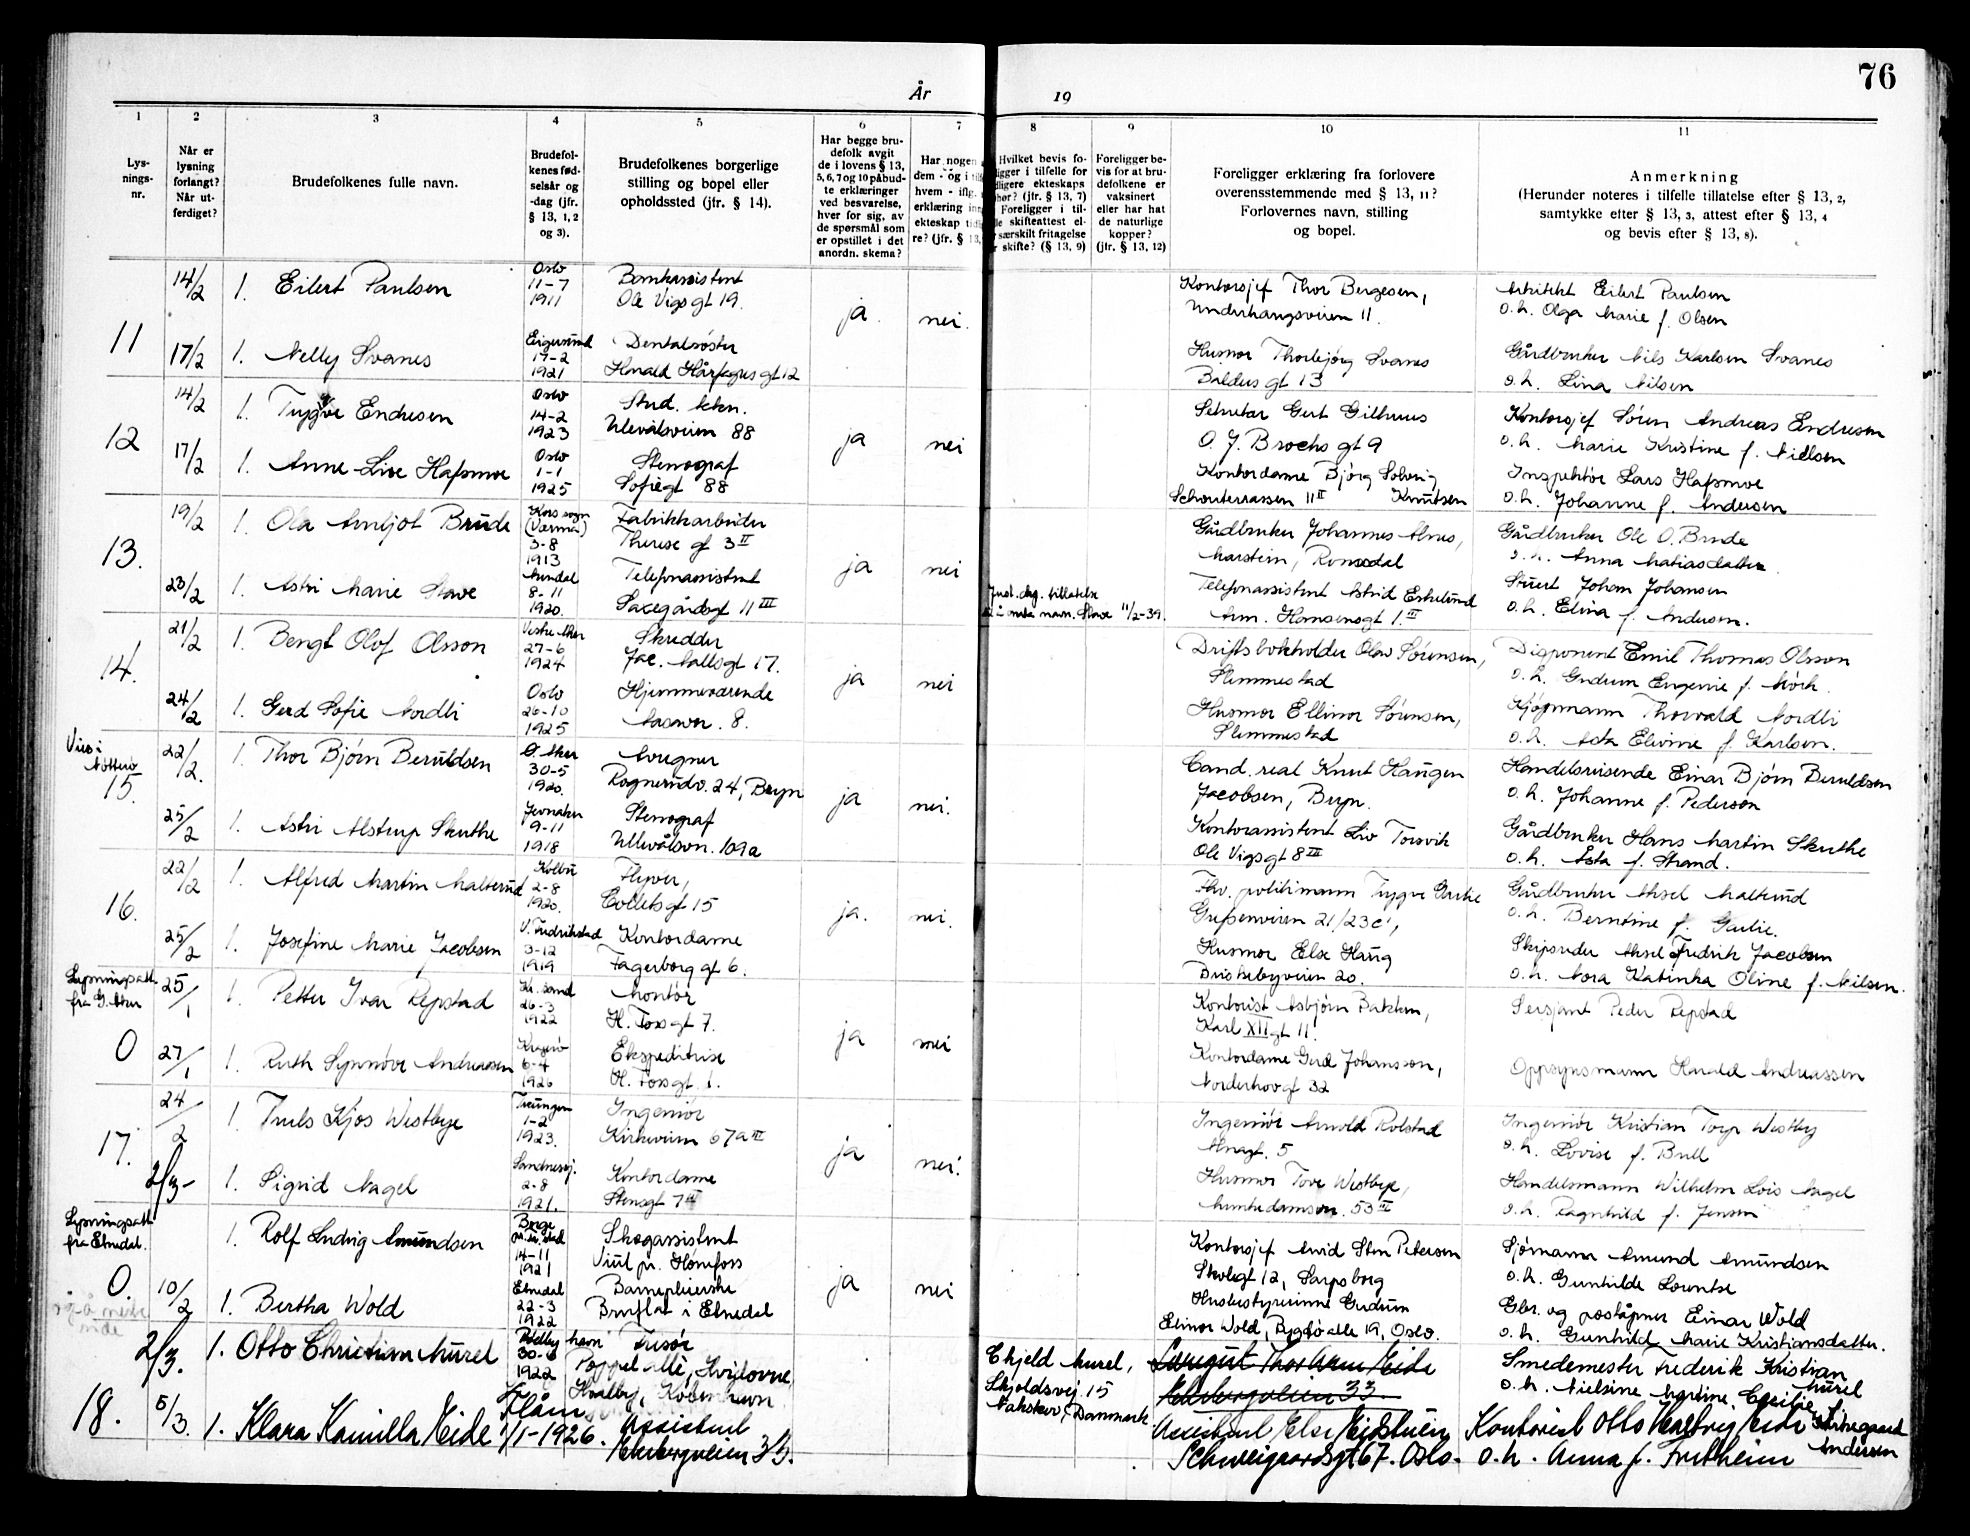 76
År 19
1 2 3 4 5 6 7 8 9 10 11
Lys-
nings-
nr.
Når er
lysning
forlangt?
Når ut-
ferdiget?
Brudefolkenes fulle navn.
Brudefol-
kenes fød-
selsår og
-dag (jfr.
§ 13, 1, 2
og 3).
Brudefolkenes borgerlige
stilling og bopel eller
opholdssted (jfr. § 14).
Har begge bru-
defolk avgit
de i lovens § 13,
5, 6, 7 og 10 påbud-
te erklæringer
ved besvarelse,
hver for sig, av
de spørsmål som
er opstillet i det
anordn. skema?
Har nogen
dem - og i
hvem - iflg.
erklæring
ekteskap
re? (jfr. § 13,
Hvilket bevis fo-
ligger i tilfelle for
ekteskaps
(jfr. § 13, 7)
Foreligger i til-
skifteattest el-
særskilt fritagelse
skifte? (§ 13, 9)
Foreligger be-
vis for at bru-
defolkene er
vaksinert
eller har hat
de naturlige
kopper?
(jfr. § 13, 12)
Foreligger erklæring fra forlovere
overensstemmende med § 13, 11?
Forlovernes navn, stilling
og bopel.
Anmerkning
(Herunder noteres i tilfelle tillatelse efter § 13, 2,
samtykke efter § 13, 3, attest efter § 13, 4
og bevis efter § 13, 8).
11
14/2 1. Eilert Paulsen
Oslo
11-7
1911
Bankassistent
Ole Vigs gt 19.
ja. nei.
Kontorsjef Thor Bergesen,
Underhaugsveien 11.
Arkitekt Eilert Paulsen
o.h. Olga Marie f. Olsen
17/2 1. Nelly Svanes
Eigersund
17-2
1921
Dentalsøster
Harald Hårfagres gt 12
Husmor Thorbjørg Svanes
Balders gt 13
Gårdbruker Nils Karlsen Svanes
o.h. Lina Nilsen
12
14/2 1. Trygve Endresen
Oslo
14-2
1923
Stud. tekn.
Ulevålsveien 88
ja nei
Sekretær Gert Gilhuus
O. J. Brochs gt 9
Kontorsjef Søren Andreas Endresen
o.h. Marie Kristine f. Nielsen
17/2 1. Anne-Lise Hafsmoe
Oslo
1-1
1925
Stenograf
Sofiegt 88
Kontordame Bjørg Solveig
Schouterrassen 11 II Knutsen
Inspektør Lars Hafsmoe
o.h. Johanne f. Andersen
13.
19/2 1. Ola Arnljot Brude
Kors sogn
3-8
1913
Fabrikkarbeider
Therese gt 3 II
ja nei
Gårdbruker Johannes Alnes,
Marstein, Romsdal
Gårdbruker Ole O. Brude
o.h. Anna Matiasdatter
23/2 1. Astri Marie Stave
8-11
1920.
Telefonassistent
Saxegårdsgt 11 III
Just. dep. tillatelse
navn. Stave 11/2-39.
Telefonassistent Astrid Eskelund
Arm. Hansensgt 1. II
Stuert Johan Johansen
o.h. Elina f. Andersen.
14.
21/2 1. Bengt Olof Olsson
Vestre Aker
27-6
1924
Skredder
Jac. Aallsgt 17.
ja nei
Driftsbokholder Olav Sørensen,
Slemmestad
Disponent Emil Thomas Olsson
o.h. Gudrun Eugenie f. Mörk.
24/2 1. Gerd Sofie Nordli
Oslo
26-10
1925
Hjemmeværende
8.
Husmor Ellinor Sørensen,
Slemmestad
Kjøpmann Thorvald Nordli
o.h. Asta Elvine f. Karlsen.
Vies i
Nøtterø
15.
22/2. 1. Thor Bjørn Beruldsen
Ø. Aker
30-5
1920.
Avregner
Rognerudv. 24, Bryn
ja nei.
Cand. real Knut Haugen
Jacobsen, Bryn.
Handelsreisende Einar Bjørn Beruldsen
o.h. Johanne f. Pedersen
25/2 1. Astri Alstrup Skuthe
Jevnaker
9-11
1918
Stenograf
Ullevålsvn. 109a
Kontorassistent Liv Torsvik
Ole Vigs gt 8 III
Gårdbruker Hans Martin Skuthe
o.h. Åsta f. Strand.
16.
22/2 1. Alfred Martin Malterud
Kolbu
2-8
1920.
Flyver,
Collets gt 15
ja. nei.
Fhv. politimann Trygve Gaulie
Grefsenveien 21/23c,
Gårdbruker Aksel Malterud
o.h. Berntine f. Gaulie.
25/2 1. Josefine Marie Jacobsen
V. Fredrikstad
3-12
1919
Kontordame
Fagerborg gt 6.
Husmor Else Haug
Briskebyveien 20.
Skipsreder Aksel Fredrik Jacobsen
o.h. Nora Katinka Oline f. Nilsen.
Lysningsatt.
fra G. Aker
0
25/1 1. Petter Ivar Repstad
Kr. sand
26-3
1922
Montør
H. Tors gt 7.
ja nei
Kontorist Asbjørn Bakken,
Karl XII gt 11
Sersjant Peder Repstad
27/1 1. Ruth Synnøve Andreassen
Kragerø
6-4
1926
Ekspeditrise
Ol. Tors gt. 1.
Kontordame Gerd Johansson,
Norderhovgt 32
Oppsynsmann Harald Andreassen
17.
24/2 1. Truls Kjos Westbye
Treungen
1-2
1923.
Ingeniør
Kirkeveien 67a III
ja nei.
Ingeniør Arnold Rolstad
Almagt. 5
Ingeniør Kristian Torp Westby
o.h. Lovise f. Bull
2/3- 1. Sigrid Nagel
Sandnessj.
2-8
1921.
Kontordame
Stensgt 7
Husmor Tove Westbye,
Munkedamsvn. 53 III
Handelsmann Wilhelm Lois Nagel
o.h. Ragnhild f. Jensen
Lysningsatt.
fra Etnedal.
0.
1. Rolf Ludvig Amundsen
Borge
14-11
1921
Skogassistent
Viul pr. Hønefoss
ja nei
Kontorsjef Arvid Sten Petersen
Skolegt 12, Sarpsborg
Sjømann Amund Amundsen
o.h. Gunhilde Lorentse
10/2 1. Bertha Wold
Etnedal
22-3
1922
Barnepleierske
Bruflat i Etnedal
Husbestyrerinne Gudrun
Elinor Wold, Bygdø alle 19, Oslo.
Gbr. og poståpner Einar Wold
o.h. Gunhild Marie Kristiansdatter.
18.
2/3. 1. Otto Christian Aurel
Rødby havn
30-6
1922
Frisør
Poppel allé, Hvidovre,
Hvalby, København
Ehjeld Aurel,
Skjoldsvej 15
Nakskov, Danmark.
Eide
33
Smedemester Frederik Kristian
Aurel
o.h. Nielsine Martine Cecilie f.
Kirkegaard
Andersen
5/3. 1. Klara Kamilla Eide
Flåm
1/1-1926.
Assistent
Ekebergveien 33.
Assistent Else Eidstuen
Schweigaardsgt 67. Oslo.
Kontorist Otto Hartvig Eide
o.h. Anna f. Fretheim